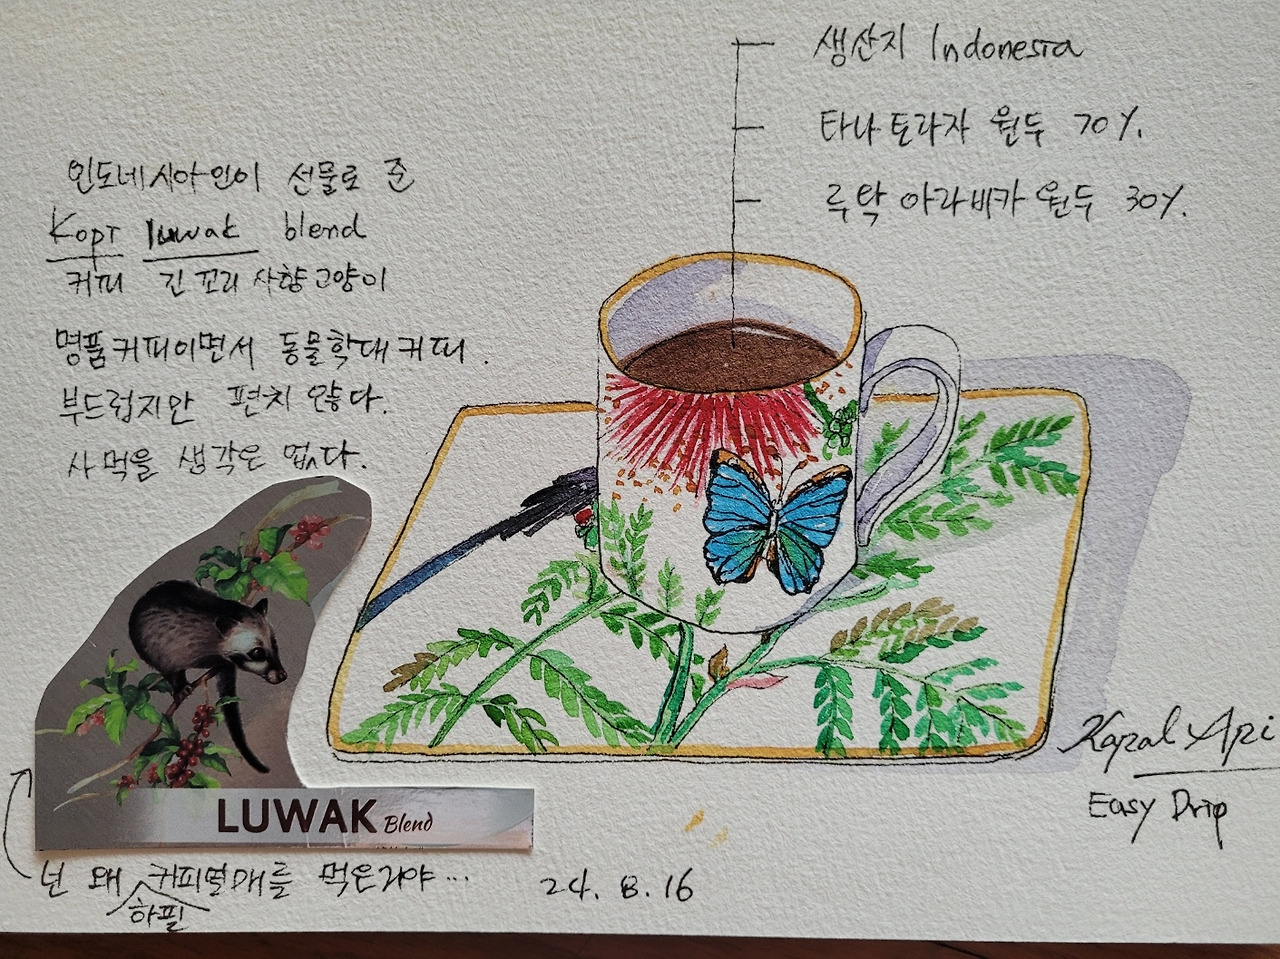 생산지 Indonesia
타나 토라자 원두 70%.
루왁 아라비카 원두 30%.
인도네시아인이 선물로 준
Kopi luwak blend
커피 긴 꼬리 사향고양이
명품커피이면서 동물학대커피.
부드럽지만 편치 않다.
사먹을 생각은 없다.
LUWAK Blend
넌 왜 하필 커피열매를 먹은거야...
24. 8. 16
Kapal Api
Easy Drip